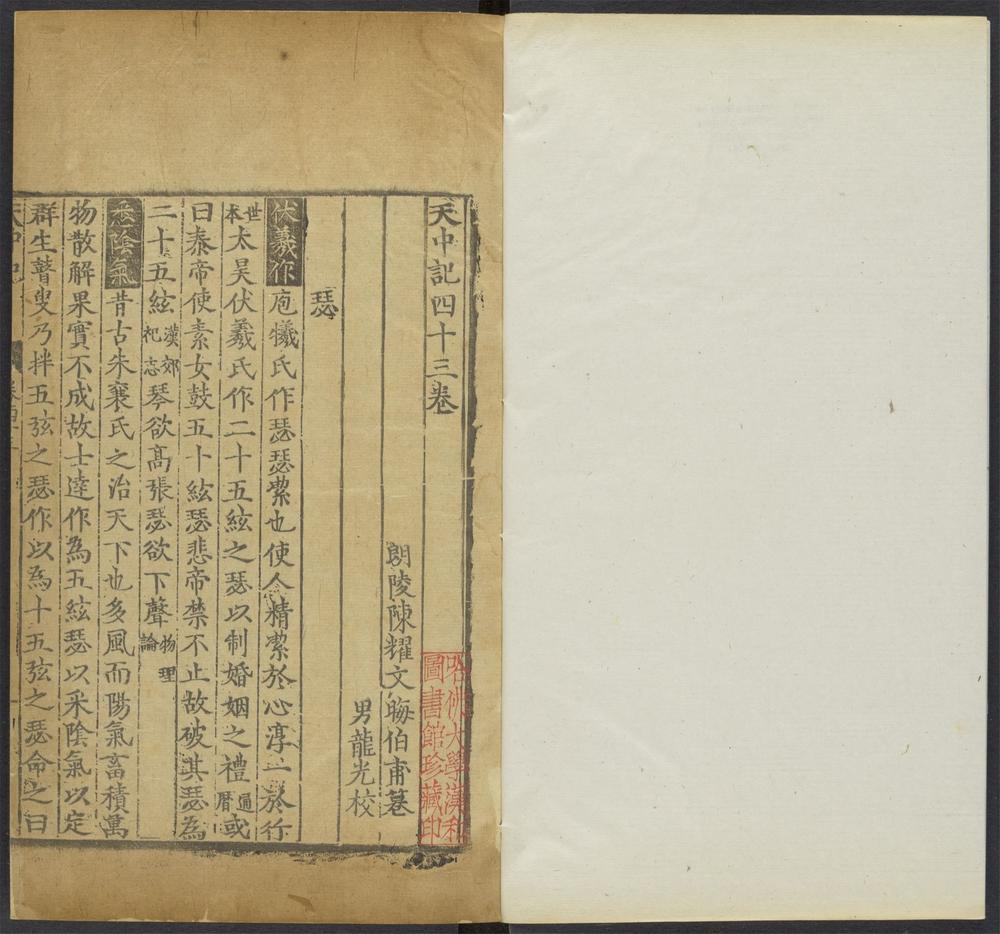 天中記四十三卷
朗陵陳耀文晦伯甫纂
男龍光校
瑟
伏羲作庖犧氏作瑟瑟潔也使人精潔於心淳一於行
世本太昊伏羲氏作二十五絃之瑟以制婚姻之禮通曆或
曰泰帝使素女鼓五十絃瑟悲帝禁不止故破其瑟為
二十五絃漢郊祀志琴欲高張瑟欲下聲物理論
采陰氣昔古朱襄氏之治天下也多風而陽氣畜積萬
物散解果實不成故士達作為五絃瑟以采陰氣以定
群生瞽叟乃拌五弦之瑟作以為十五弦之瑟命之曰
哈佛大學漢和圖書館珍藏印